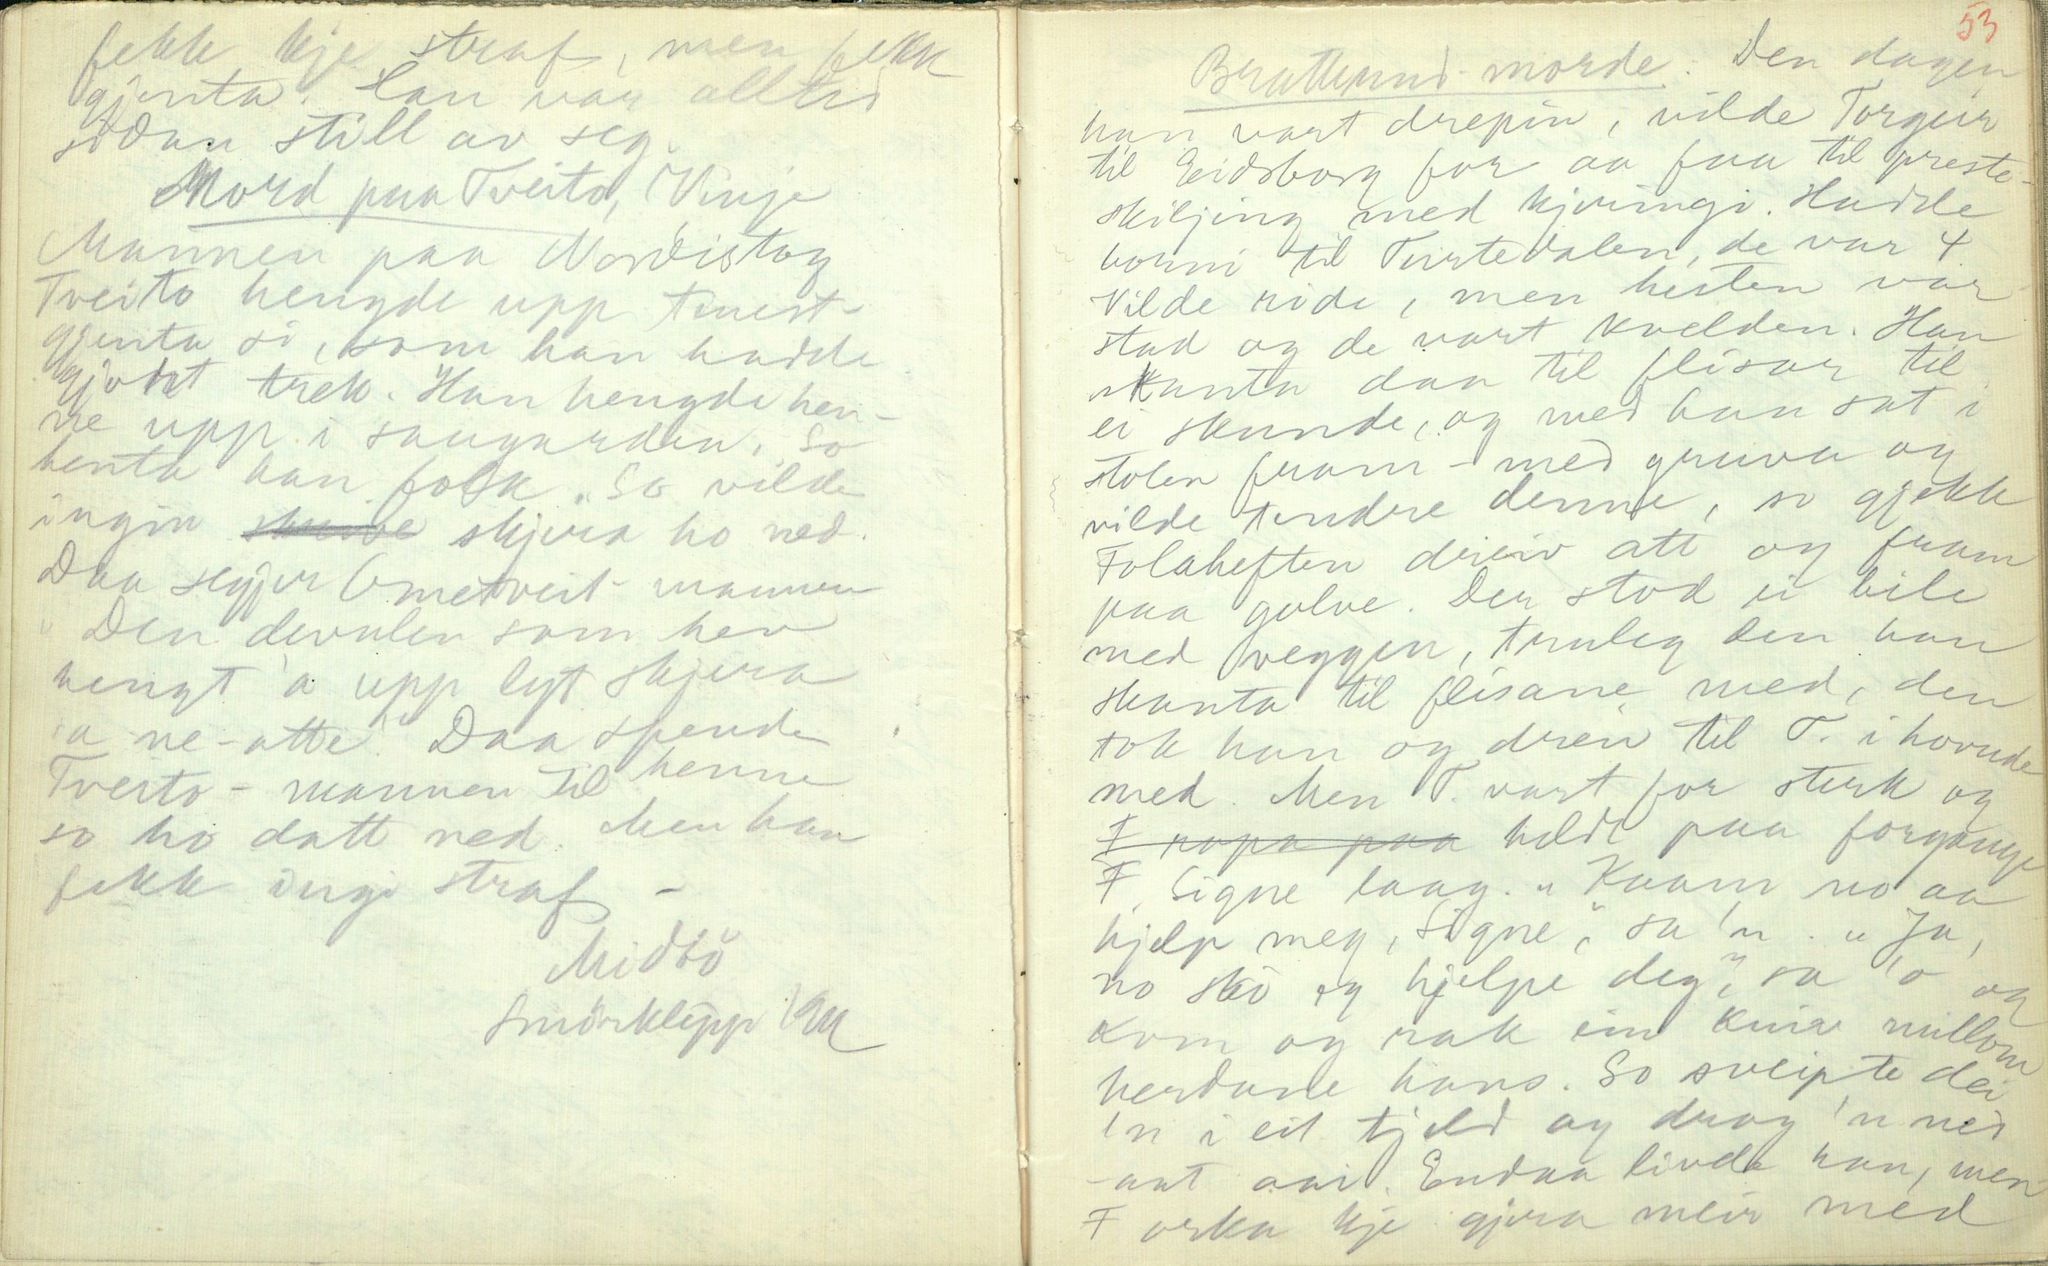 fekk kje straf, men fekk
gjenta. Han var alltid
sidan still av seg.
Mord paa Tveito, Vinje
Mannen paa Nordistog
Tveito hengde upp tenest-
gjenta si, som han hadde
gjort trek. Han hengde hen-
ne upp i saugarden. So
henta han folk. So vilde
ingin skjera ho ned.
Daa segjer Ometveit-mannen
"Den devulen som hev
hengt 'a upp lyt skjera
'a ne-atte." Daa spende
Tveito-mannen til henne
so ho datt ned. Men han
fekk ingi straf -
Midbö
Smörklepp
53
Brattlund-morde. Den dagen
han vart drepin, vilde Torgeir
til Eidsborg for aa faa til preste-
skiljing med kjeringi. Hadde
borni til Tirtedalen, de var 4.
Vilde ride, men hesten var
stad og de vart kvelden. Han
skanta daa til flisar til
ei skunde, og med han sat i
stolen fram-med gruva og
vilde tendre denne, so gjekk
Folaheften dreiv att og fram
paa golve. Der stod ei bile
med veggen, truleg den han
skanta til flisane med, den
tok han og dreiv til T. i hovude
med. Men T. vart for sterk og
F ropa paa heldt paa forgange
F. Signe laag. "Kaam no aa
hjelp meg, Signe", sa 'n. "Ja,
no skò eg hjelpe deg", sa 'o og
kom og rak ein kniv millom
herdane hans. So sveipte dei
'n i eit tjeld og drog 'n ned
-aat aai. Endaa livde han, men
F orka kje gjera meir med